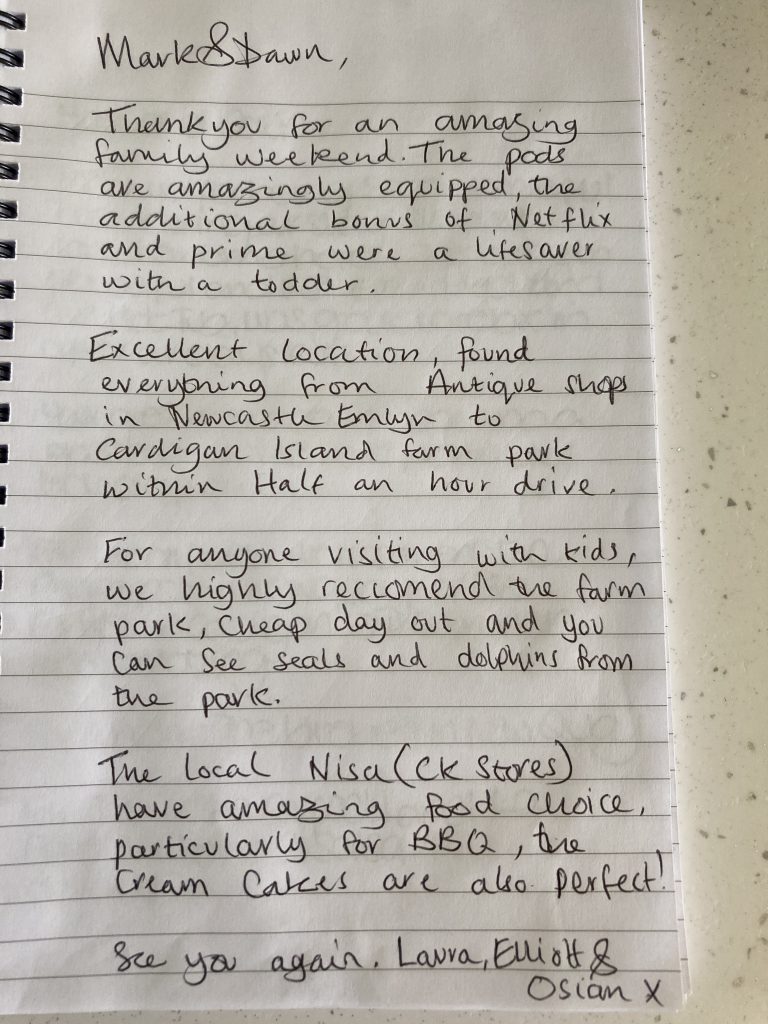 Mark & Dawn,
Thankyou for an amazing
family weekend. The pods
are amazingly equipped, the
additional bonus of Netflix
and prime were a lifesaver
with a todder.
Excellent location, found
everything from Antique shops
in Newcastle Emlyn to
Cardigan Island farm park
within Half an hour drive.
For anyone visiting with kids,
we highly reccomend the farm
park, cheap day out and you
can see seals and dolphins from
the park.
The local Nisa (CK Stores)
have amazing food choice,
particularly for BBQ, the
Cream Cakes are also perfect!
See you again. Laura, Elliott &
Osian x